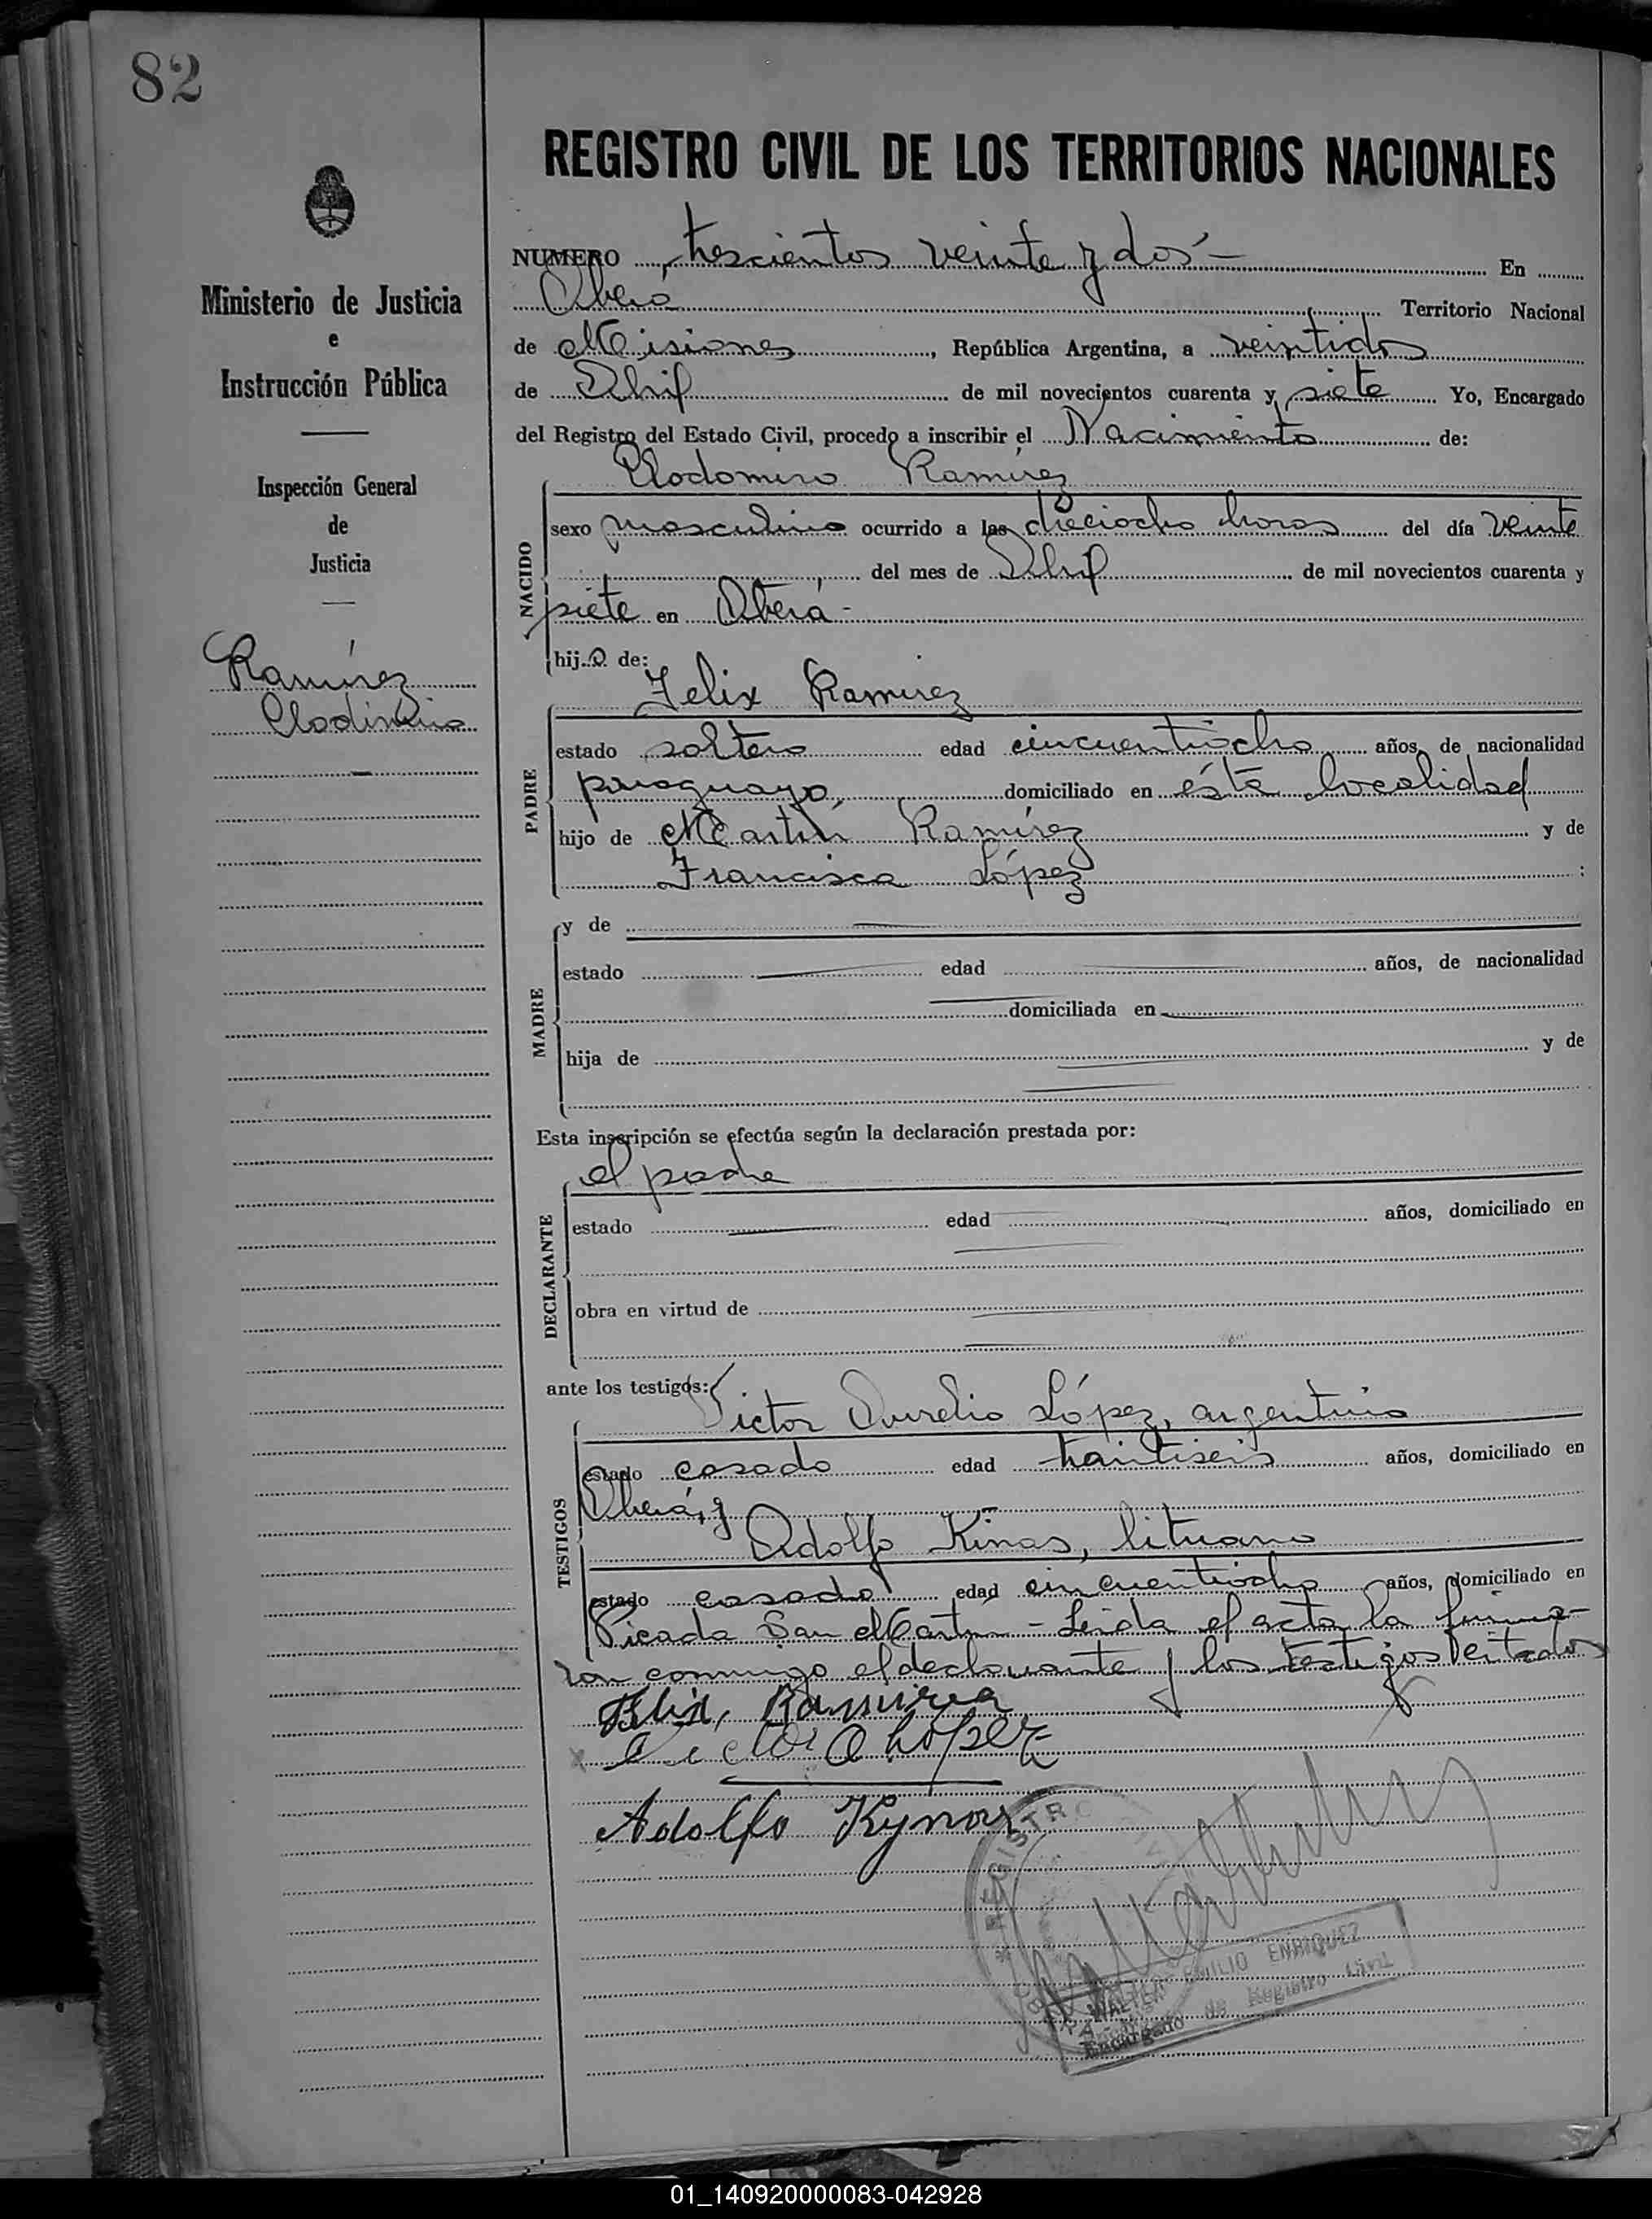 82
REGISTRO CIVIL DE LOS TERRITORIOS NACIONALES
Ministerio de Justicia
e
Instrucción Pública
Inspección General
de
Justicia
Ramírez
NUMERO trescientos veinte y dos - En
Oberá Territorio Nacional
de Misiones, República Argentina, a veintidos
de Abril de mil novecientos cuarenta y siete Yo, Encargado
del Registro del Estado Civil, procedo a inscribir el Nacimiento de:
Clodomiro Ramírez
NACIDO
sexo masculino ocurrido a las dieciocho horas del día veinte
del mes de Abril de mil novecientos cuarenta y
siete en Oberá -
hijo de:
Felix Ramirez
PADRE
estado soltero edad cincuentiocho años, de nacionalidad
paraguayo, domiciliado en ésta localidad
hijo de Martín Ramírez y de
Francisca López ;
MADRE
y de
estado edad años, de nacionalidad
domiciliada en
hija de y de
Esta inscripción se efectúa según la declaración prestada por:
el padre
DECLARANTE
estado edad años, domiciliado en
obra en virtud de
ante los testigos:
Victor Aurelio López, argentino
TESTIGOS
estado casado edad treintiseis años, domiciliado en
Oberá, y
Adolfo Kinas, lituano
estado casado edad cincuentiocho años, domiciliado en
Picada San Martin - Leida el acta la firma-
ron conmigo el declarante y los testigos citados
Felix, Ramirez
Victor A López
Adolfo Kynas
REGISTRO
WALTER EMILIO ENRIQUEZ
Encargado de Registro Civil
01_140920000083-042928